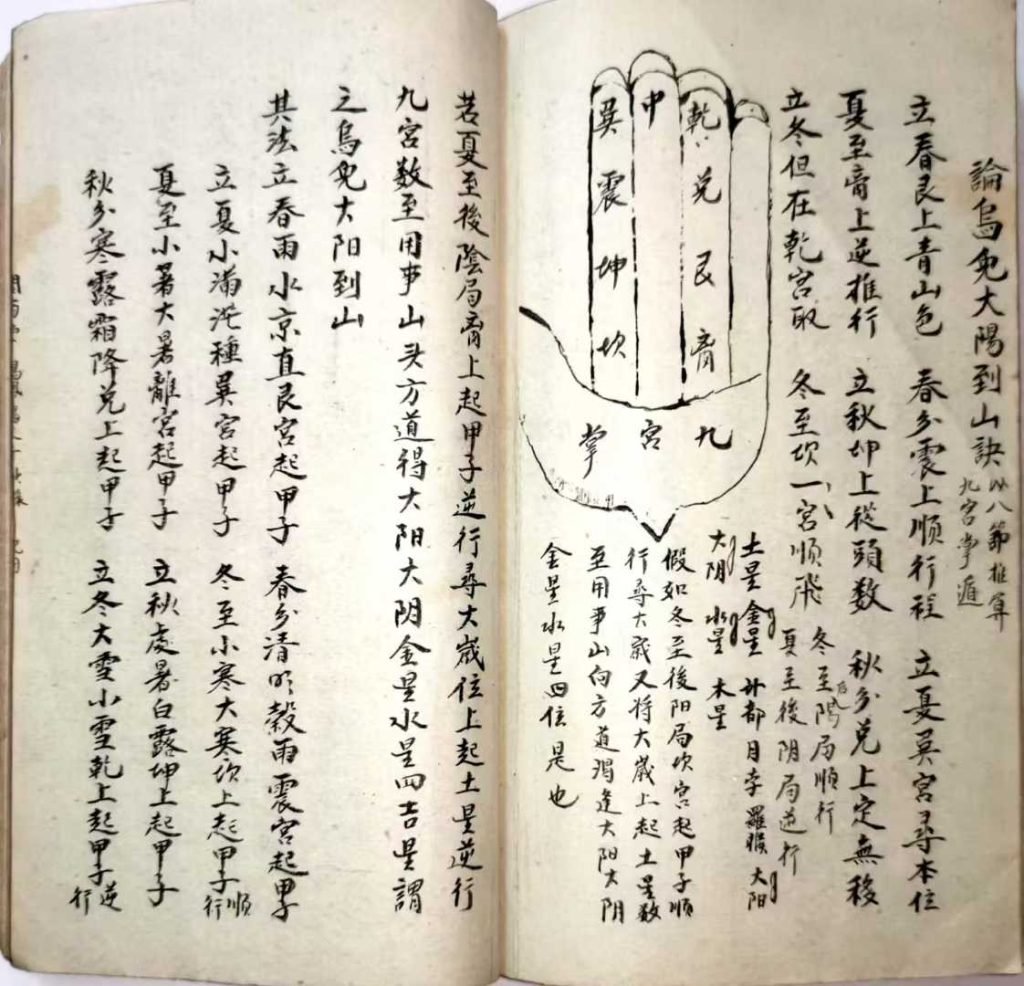 論烏兔大陽到山訣 以八節推算
九宮掌遁
立春艮上青山色 春分震上順行程 立夏巽宮尋本位
夏至离上逆推行 立秋坤上從頭数 秋分兑上定無移
立冬但在乾宮取 冬至坎一宮順飛 冬至后陽局順行
夏至後阴局逆行
巽 震 坤 坎
中
乾 兑 艮 离
九宮掌
土星 金星 计都 月孛 羅睺 大阳
大阴 水星 木星
假如冬至後阳局坎宮起甲子順
行尋大歲又将大歲上起土星数
至用事山向方道遇逢大阳大阴
金星水星四位是也
若夏至後陰局离上起甲子逆行尋大歲位上起土星逆行
九宮数至用事山头方道得大阳大阴金星水星四吉星謂
之烏兔大阳到山
其法立春雨水京直艮宮起甲子 春分清明穀雨震宮起甲子
立夏小滿芒種巽宮起甲子 冬至小寒大寒坎上起甲子順行
夏至小暑大暑離宮起甲子 立秋處暑白露坤上起甲子
秋分寒露霜降兑上起甲子 立冬大雪小雪乾上起甲子逆行